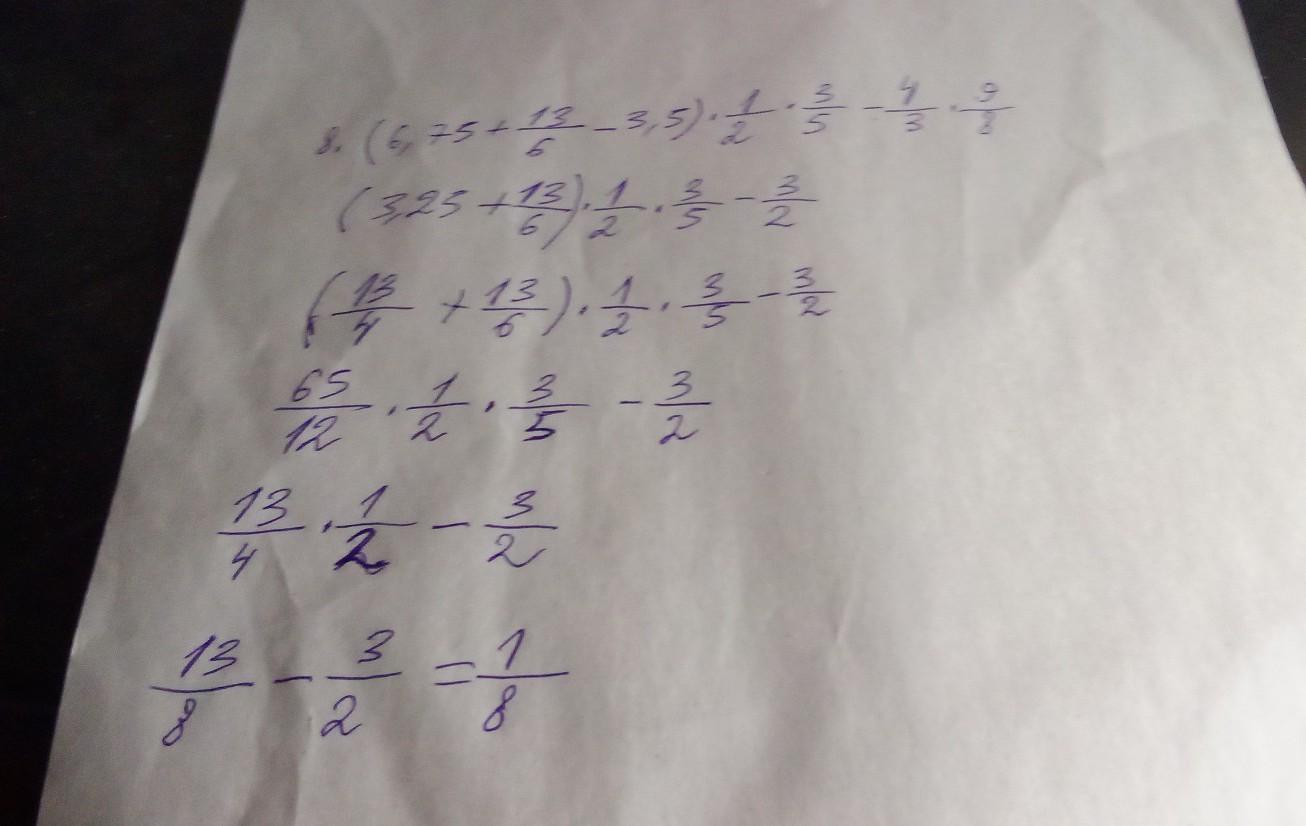 8. (6,75 + 13/6 - 3,5) · 1/2 · 3/5 - 4/3 · 9/8
(3,25 + 13/6) · 1/2 · 3/5 - 3/2
(13/4 + 13/6) · 1/2 · 3/5 - 3/2
65/12 · 1/2 · 3/5 - 3/2
13/4 · 1/2 - 3/2
13/8 - 3/2 = 1/8